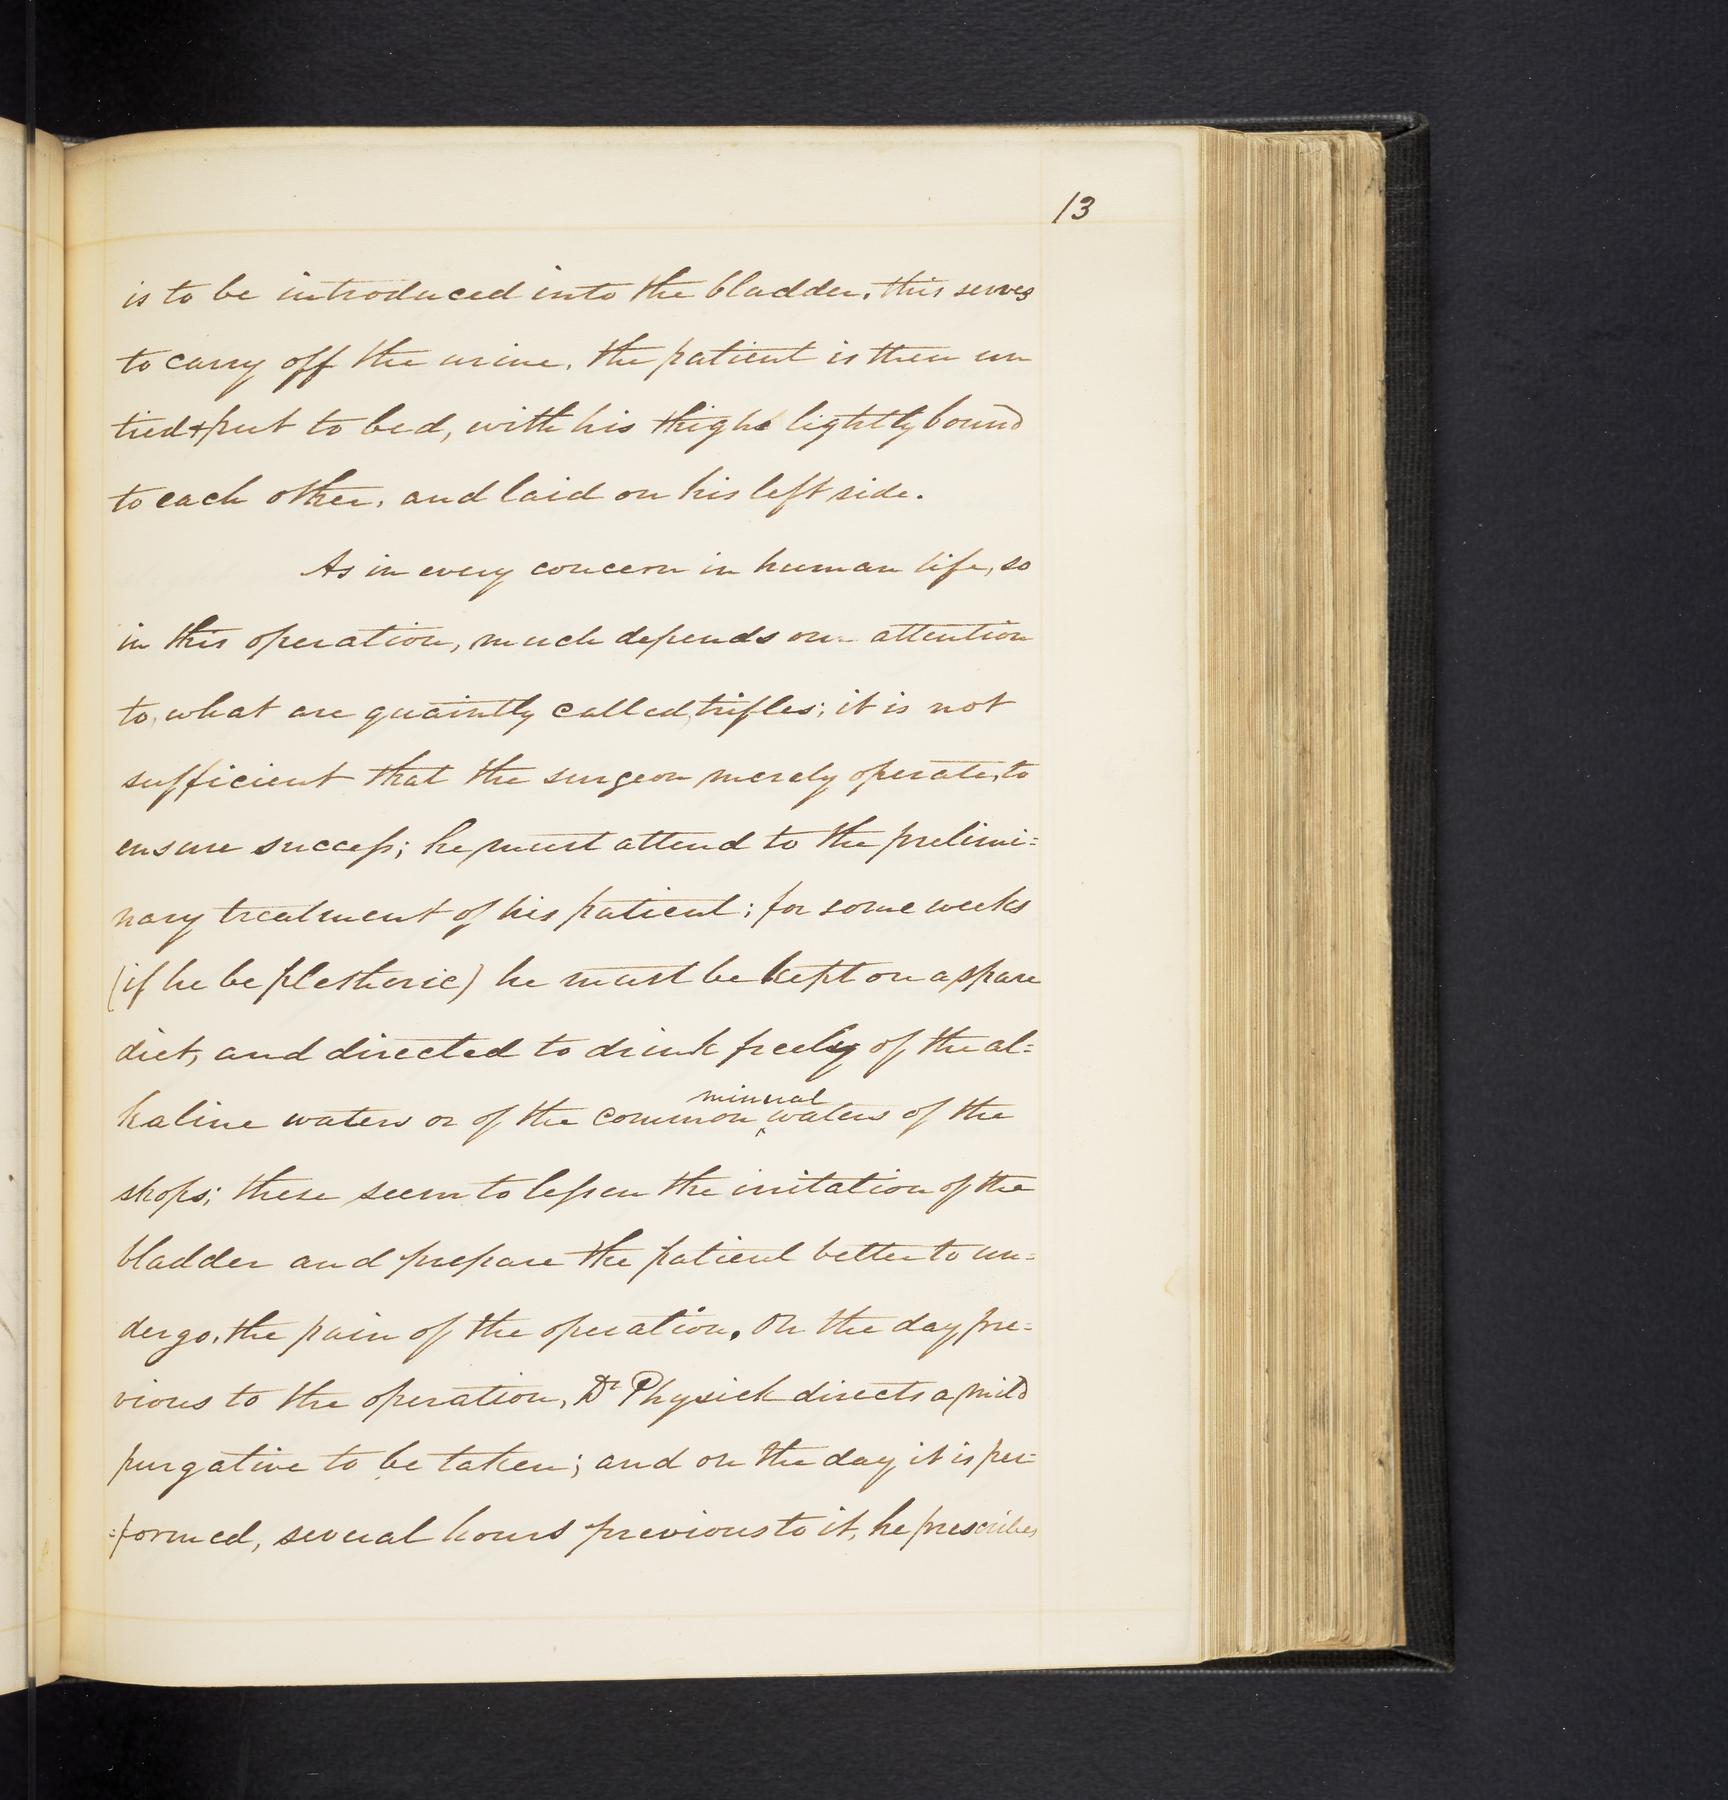 13
is to be introduced into the bladder, this serves
to carry off the urine, the patient is then un
tied & put to bed, with his thighs lightly bound
to each other, and laid on his left side.
As in every concern in human life, so
in this operation, much depends on attention
to, what are quaintly called, trifles; it is not
sufficient that the surgeon merely operate, to
ensure success; he must attend to the prelimi=
nary treatment of his patient; for some weeks
(if he be plethoric) he must be kept on a spare
diet, and directed to drink freely of the al=
kaline waters or of the common ^mineral waters of the
shops; these seem to lessen the irritation of the
bladder and prepare the patient better to un=
dergo, the pain of the operation. On the day pre=
vious to the operation, Dr Physick directs a mild
purgative to be taken; and on the day it is per=
=formed, several hours previous to it, he prescribes